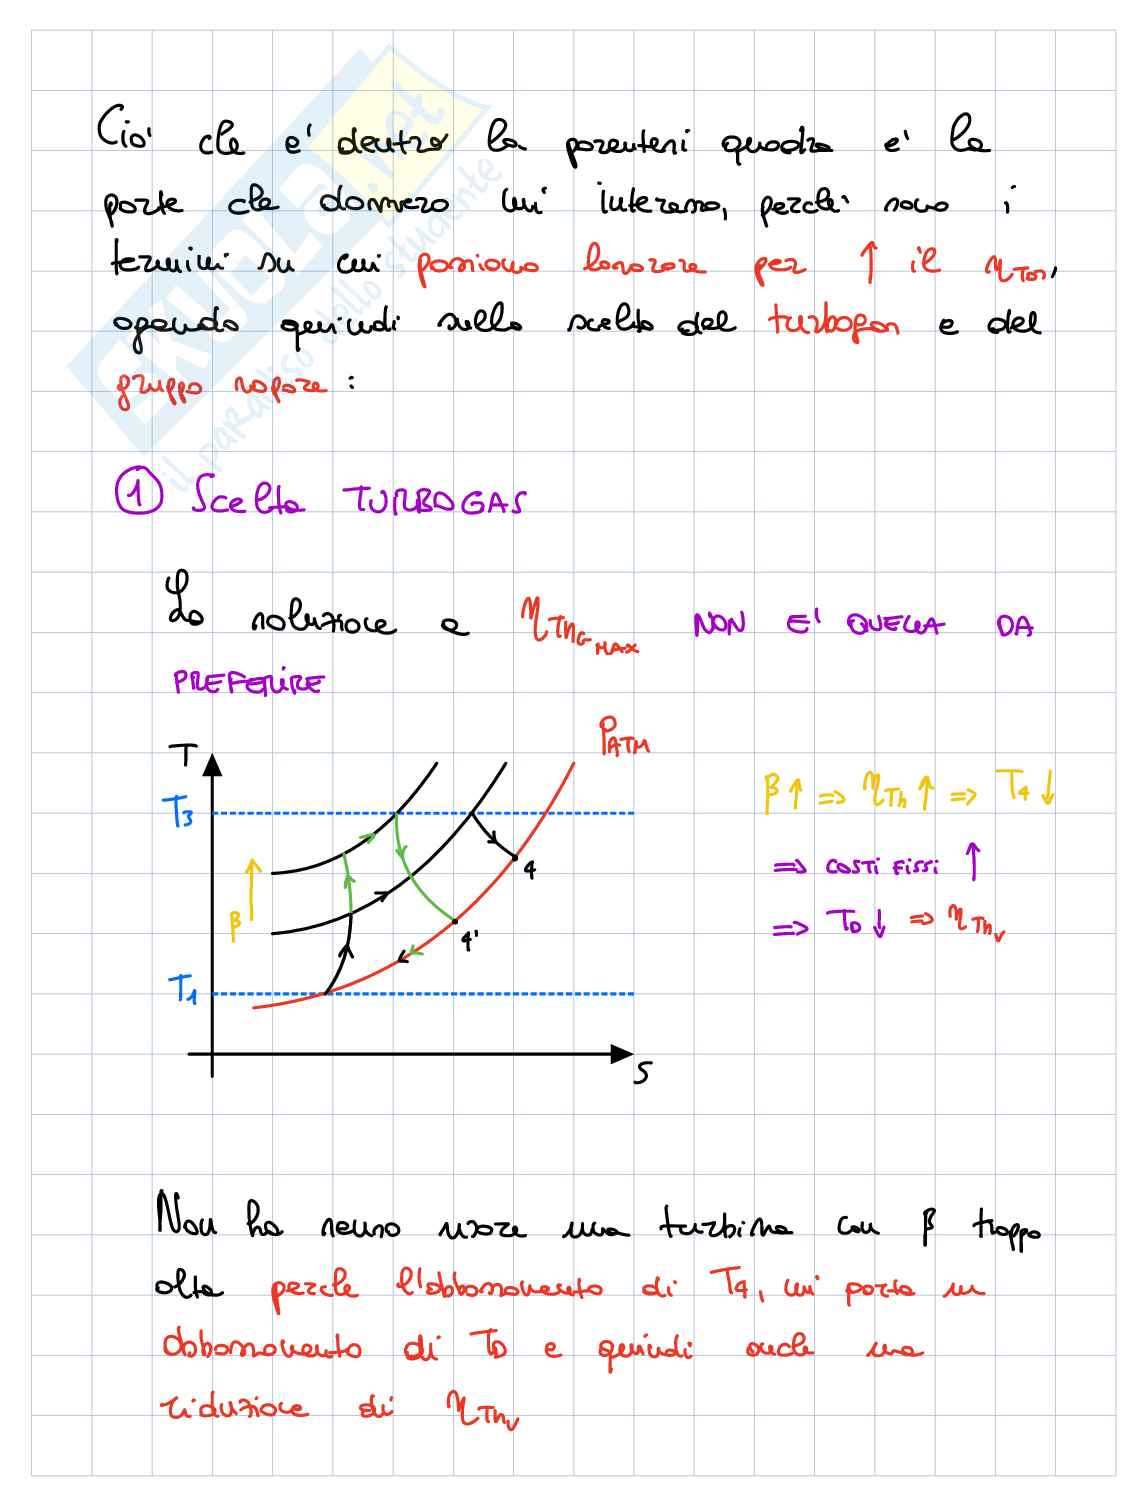 Ciò che e' dentro la parentesi quadra e' la
parte che davvero mi interessa, perchè sono i
termini su cui possiamo lavorare per ↑ il η_Tot,
agendo quindi sulla scelta del turbogas e del
gruppo vapore :
① Scelta TURBOGAS
La soluzione a η_ThG_MAX NON E' QUELLA DA
PREFERIRE
P_ATM
T
T3
β↑ ⇒ η_Th↑ ⇒ T4↓
⇒ COSTI FISSI ↑
4
β
⇒ T_D↓ ⇒ η_Thv
4'
T1
S
Non ha senso usare una turbina con β troppo
alta perche l'abbassamento di T4, mi porta un
abbassamento di TD e quindi anche una
riduzione di η_Thv
SKUOLA.net
il paradiso dello studente